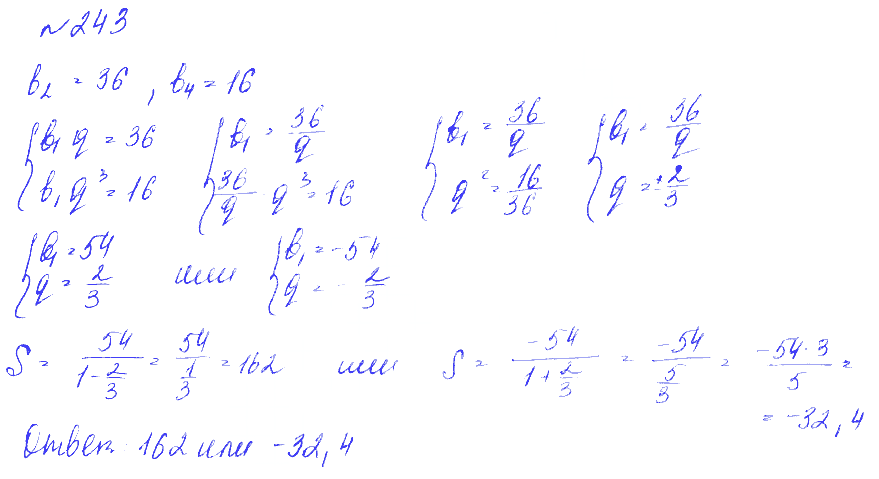 №243
b₂ = 36, b₄ = 16
{b₁q = 36 {b₁ = 36/q {b₁ = 36/q {b₁ = 36/q
{b₁q³ = 16 {36/q · q³ = 16 {q² = 16/36 {q = ±2/3
{b₁ = 54 или {b₁ = -54
{q = 2/3 {q = -2/3
S = 54/(1 - 2/3) = 54/(1/3) = 162 или S = -54/(1 + 2/3) = -54/(5/3) = -54·3/5 =
= -32,4
Ответ 162 или -32,4